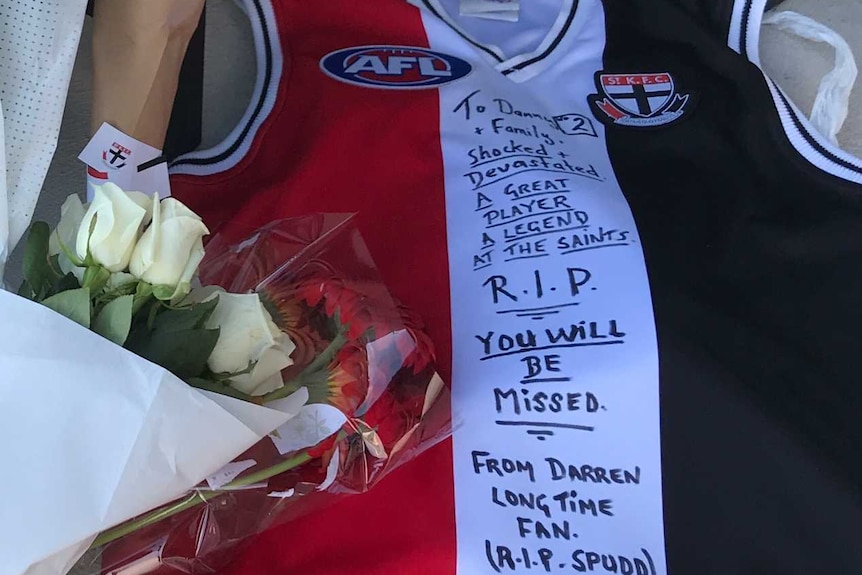 AFL
ST K.F.C.
To Danny #2
+ Family.
Shocked +
Devastated.
A GREAT
PLAYER
A LEGEND
AT THE SAINTS.
R.I.P.
YOU WILL
BE
MISSED.
FROM DARREN
LONG TIME
FAN.
(R.I.P. SPUDD)